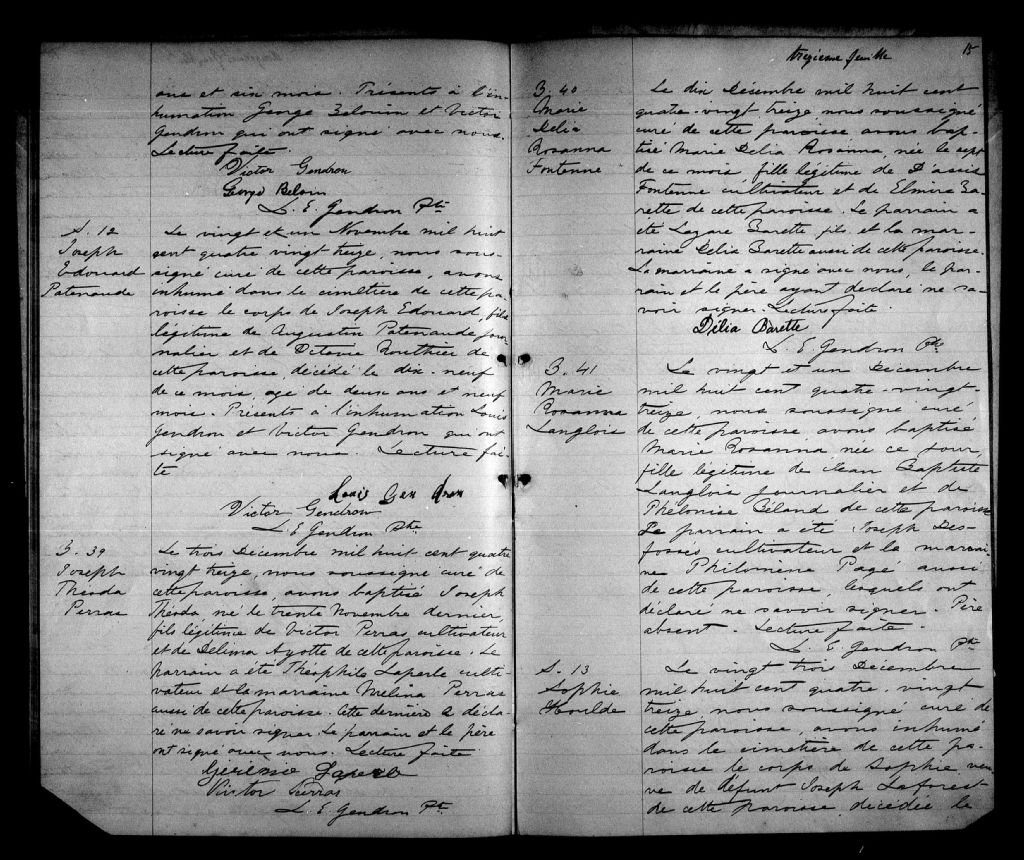 ans et six mois. Présents à l'in-
humation George Belouin et Victor
Gendron qui ont signé avec nous.
Lecture faite.
Victor Gendron
George Beloin
L. E. Gendron Ptre
S. 12
Joseph
Edouard
Patenaude
Le vingt et un Novembre mil huit
cent quatre vingt treize, nous sous-
signé curé de cette paroisse, avons
inhumé dans le cimetière de cette pa-
roisse le corps de Joseph Edouard, fils
légitime de Augustin Patenaude jour-
nalier et de Octavie Routhier de
cette paroisse, décédé le dix-neuf
de ce mois, age de deux ans et neuf
mois. Présents à l'inhumation Louis
Gendron et Victor Gendron qui ont
signé avec nous. Lecture fai-
te
Louis Gendron
Victor Gendron
L. E. Gendron Ptre
B. 39
Joseph
Théoda
Perras
Le trois Décembre mil huit cent quatre
vingt treize, nous soussigné curé de
cette paroisse, avons baptisé Joseph
Théoda né le trente Novembre dernier,
fils légitime de Victor Perras, cultivateur
et de Délima Ayotte de cette paroisse. Le
parrain a été Théophile Laperle culti-
vateur et la marraine Mélina Perras
aussi de cette paroisse. Cette dernière a décla-
ré ne savoir signer. Le parrain et le père
ont signé avec nous. Lecture faite
Victor Perras
L. E. Gendron Pt.
treizieme feuille
15
B. 40
Marie
Délia
Rosanna
Fontenne
Le dix Décembre mil huit cent
quatre-vingt treize, nous soussigné
curé de cette paroisse avons bap-
tisé Marie Délia Rosanna, née le sept
de ce mois, fille légitime de D'assis
Fontenne cultivateur et de Elmire Ba-
rette de cette paroisse. Le parrain a
été Lazare Barette fils et la mar-
raine Délia Barette aussi de cette paroisse.
La marraine a signé avec nous, le par-
rain et le père ayant déclaré ne sa-
voir signer. Lecture faite.
Délia Barette
L. E. Gendron Ptre
B. 41
Marie
Rosanna
Langlois
Le vingt et un Décembre
mil huit cent quatre-vingt
treize, nous soussigné curé
de cette paroisse, avons baptisé
Marie Rosanna née ce jour,
fille légitime de Jean Baptiste
Langlois journalier et de
Phélonise Béland de cette paroisse
Le parrain a été Joseph Des-
fossés cultivateur et la marrai-
ne Philomène Pagé aussi
de cette paroisse, lesquels ont
déclaré ne savoir signer. Père
absent. Lecture faite.
L. E. Gendron Ptre
S. 13
Sophie
Houlde
Le vingt trois Décembre
mil huit cent quatre-vingt
treize nous soussigné curé de
cette paroisse, avons inhumé
dans le cimetière de cette pa-
roisse le corps de Sophie veu-
ve de défunt Joseph Laforest
de cette paroisse décédée le